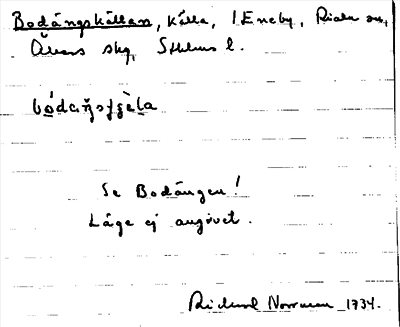 Bodängskällan, källa, 1 Eneby, Riala sn,
Åkers skg, Sthlms l.
bo̱daŋsçɛ̀la
Se Bodängen!
Läge ej angivet.
Richard Norrman 1934.